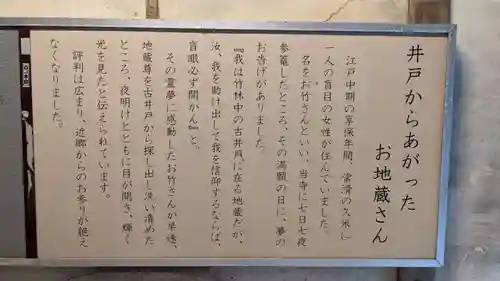 井戸からあがった
お地蔵さん
江戸中期の享保年間、常滑の久米に
一人の盲目の女性が住んでいました。
名をお竹さんといい、当寺に七日七夜
参籠したところ、その満願の日に、夢の
お告げがありました。
『我は竹林中の古井戸に在る地蔵だが、
汝、我を助け出して我を信仰するならば、
盲眼必ず開かん』と。
その霊夢に感動したお竹さんが早速、
地蔵尊を古井戸から探し出し洗い清めた
ところ、夜明けとともに目が開き、輝く
光を見たと伝えられています。
評判は広まり、近郷からのお参りが絶え
なくなりました。